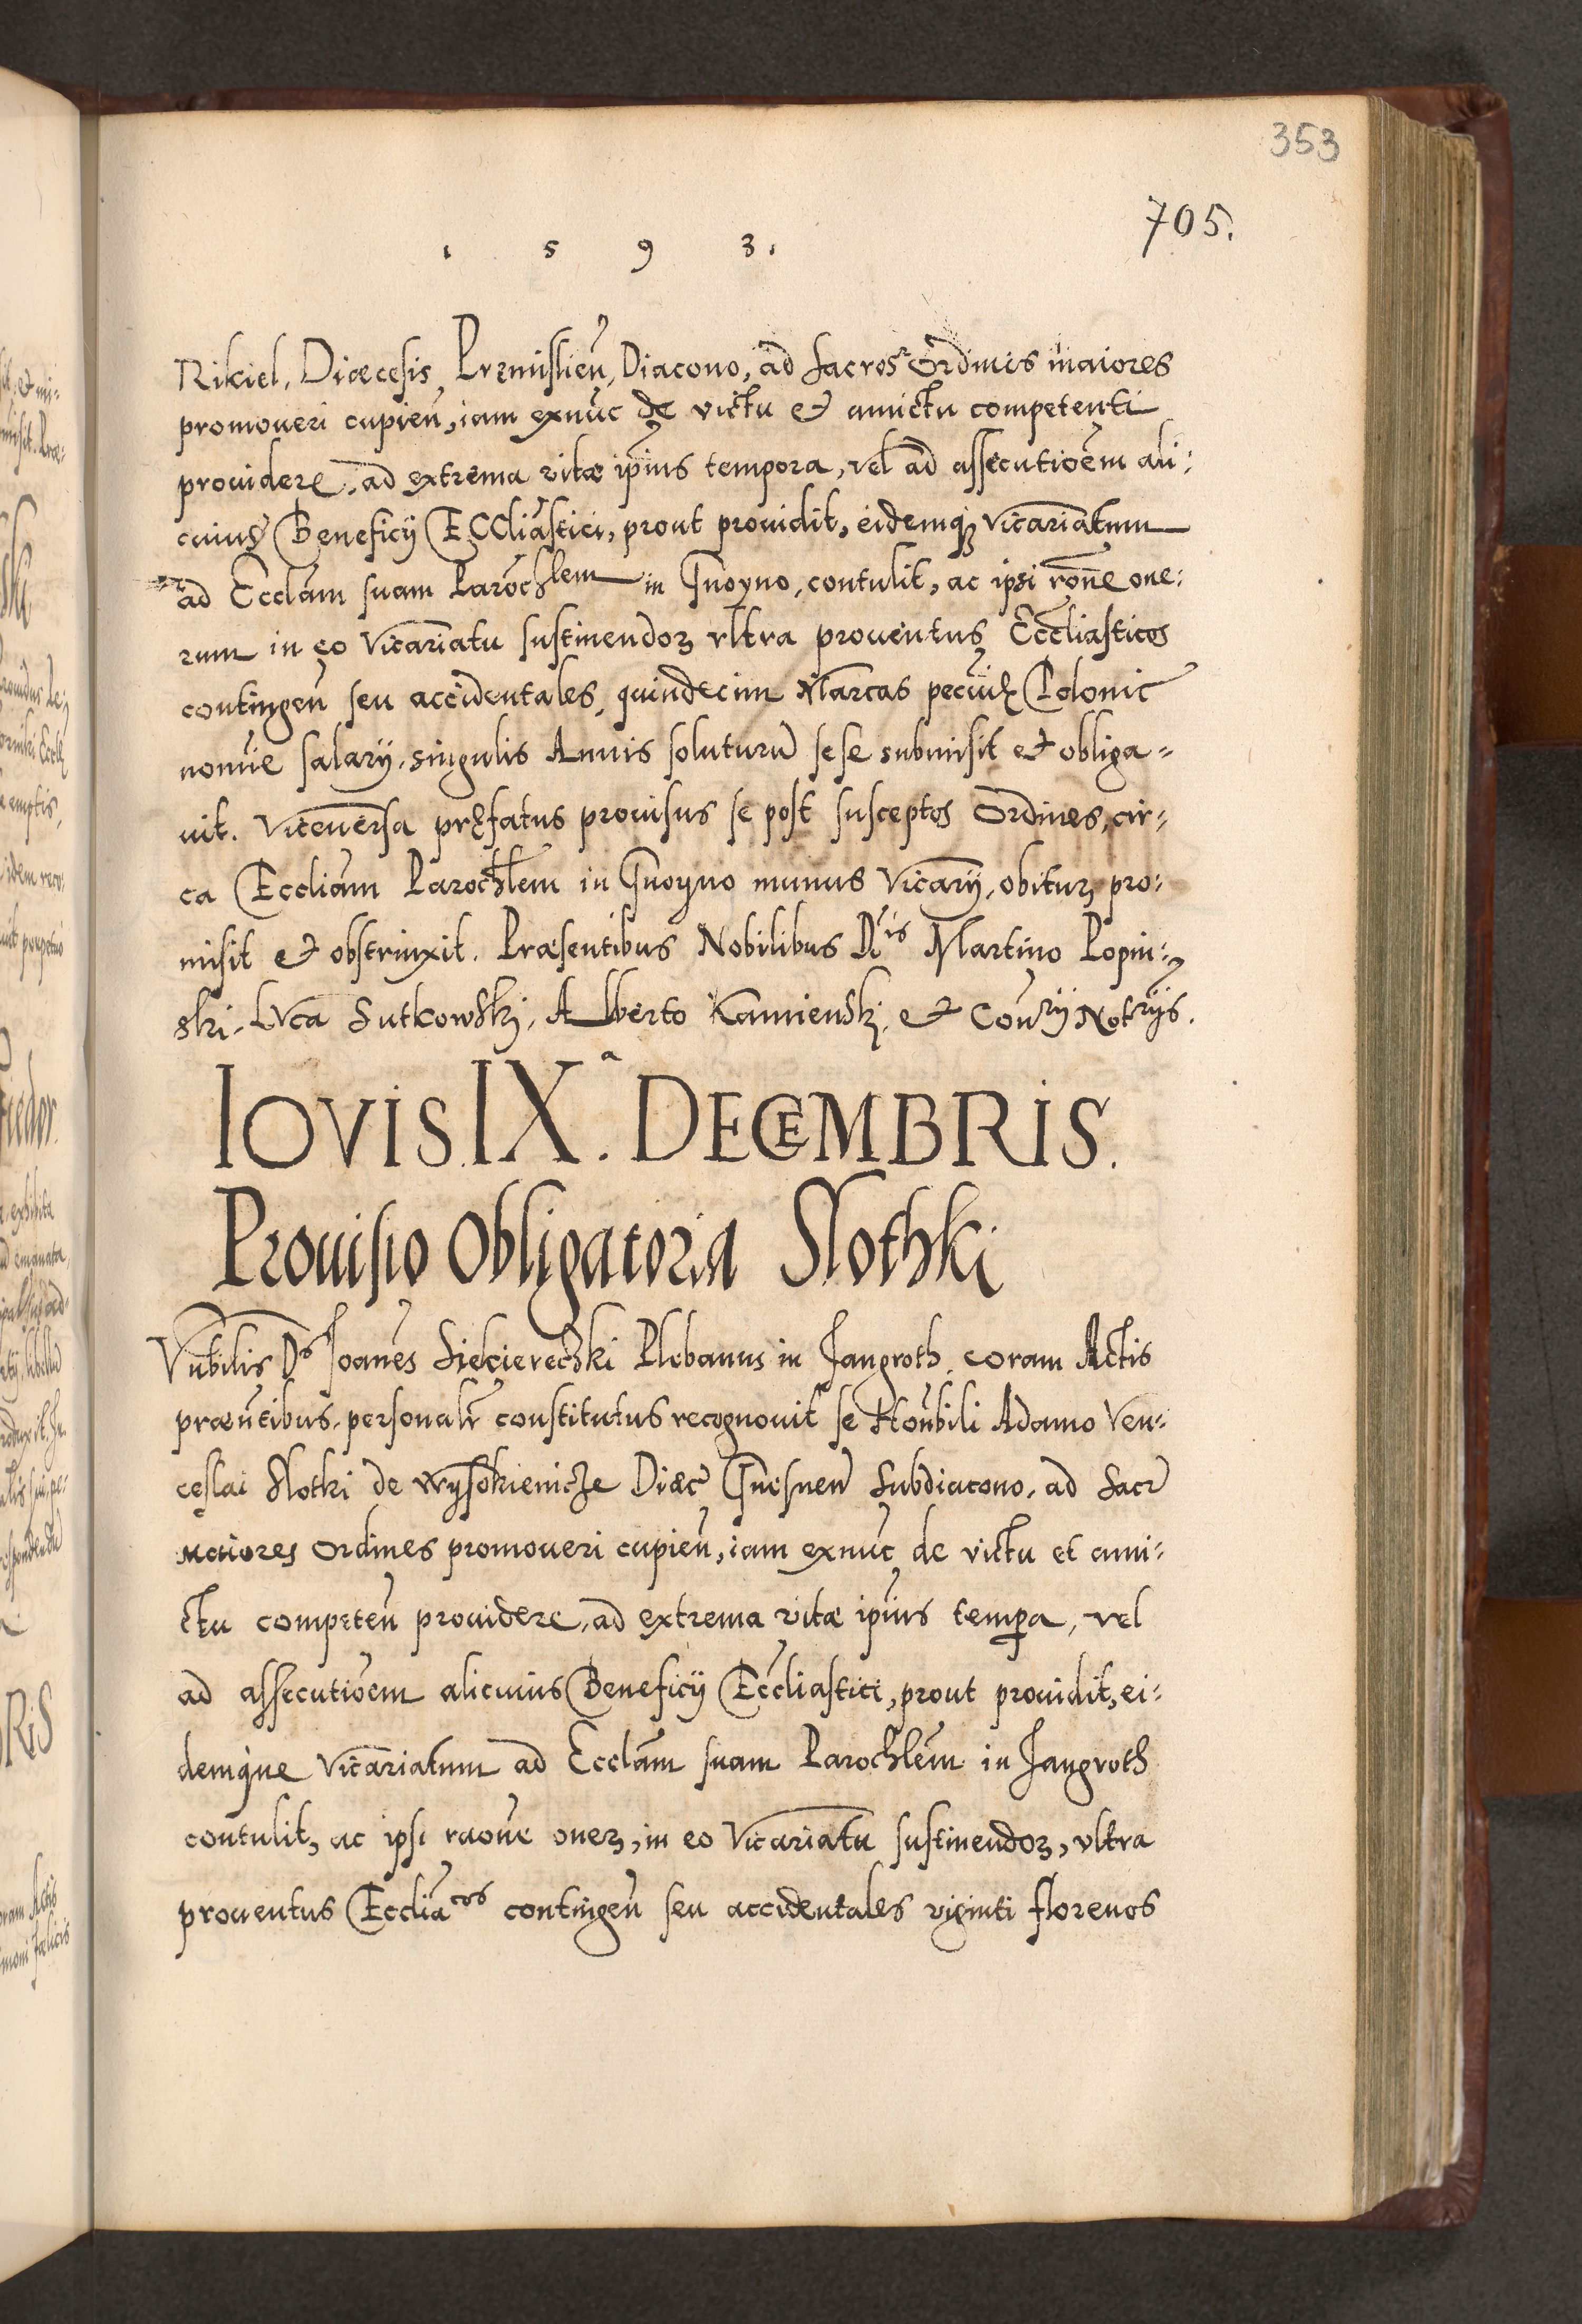 353
705.
1 5 9 3.
Rikiel, Diœcesis Premislień, Diacono, ad sacros Ordines maiores
promoueri cupień, iam exnūc de victu et amictu competenti
prouidere, ad extrema vitæ ipīus tempora, vel ad assecutiōem ali:
cuius Beneficij ECCliāstici, prout prouidit, eidemqꝫ Vicariatum
ad Ecclām suam Parōchlem in Gnoyno, contulit, ac ipsi rōne one:
rum in eo Vicariatu sustinendoꝝ vltra prouentus Ecclīasticos
contingeń seu accidentales, quindecim Marcas pecuīę Polonic
nomīe salarij, singulis Annis soluturū sese submisit et obliga=
uit. Viceuersa pręfatus prouisus se post susceptos Ordines, cir=
ca Eccliām Parochlēm in Gnoyno munus Vicarij, obituꝝ pro:
misit et obstrinxit. Præsentibus Nobilibus Dn̄is Martino Popin:
ski, Lvca Sutkowskj, Alberto Kamienskj, et Coūrij Notrijs.
IOVIS. IX.ª DECEMBRIS.
Prouisio Obligatoria Slothki
Vn̄bilis Dn̄s Joanēs Siekierechki Plebanus in Jangroth, coram Actis
præn̄tibus, personalr̄ constitutus recognouit se Hon̄bili Adamo Ven:
ceslai Slotki de Wysokienicze Diœc̄ Gnesneń Subdiacono, ad Sacr̄
Maiores Ordines promoueri cupień, iam exnūc de victu et ami:
ctu competeń prouidere, ad extrema vitæ ipīus temꝑa, vel
ad assecutiōem alicuius Beneficij Ecclīastici, prout prouidit, ei:
demque Vicariatum ad Ecclām suam Parochlēm in Jangroth
contulit, ac ipsi raōne oneꝝ, in eo Vicariatu sustinendoꝝ, vltra
prouentus Eccliācos contingeń seu accidentales viginti florenos